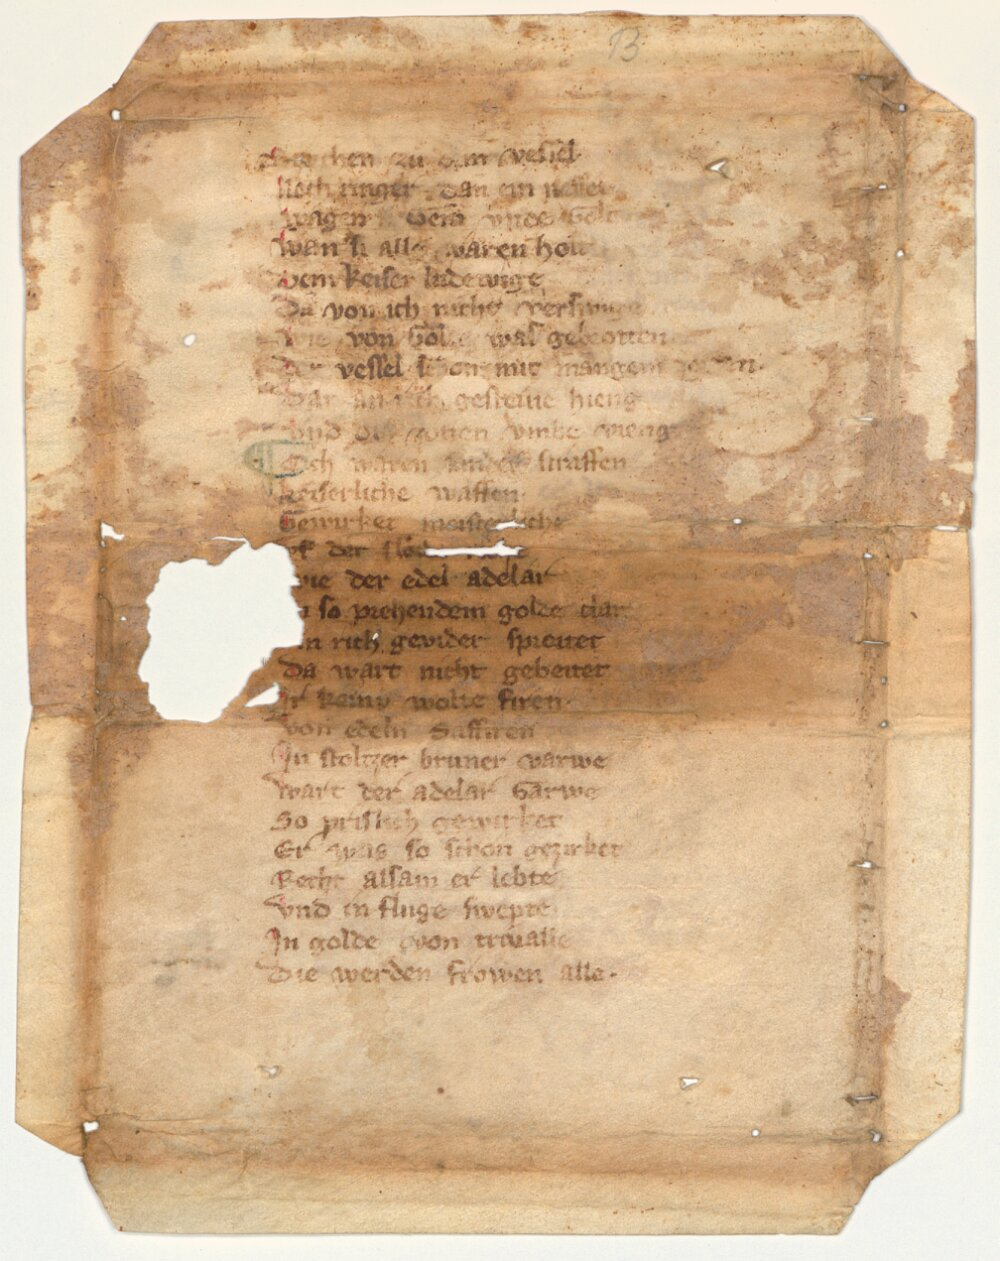 B
zu dem vessel
Noch ringer dan ein
wagen vnde
wan si alle waren holt
Dem keiser ludewige
Da von ich nicht verswige
wie von golde was gebotten
Der vessel schon mit mangem
Dar an rich gesteine hieng
vnd die vmbe vieng
Och waren an der strassen
keiserliche waffen
Gewurket meisterliche
vf der
wie der edel adelar
so prehendem golde clar
in rich gevider spreitet
Da wart nicht gebeitet
Jr keiny wolte firen
von edeln Saffiren
Jn stoltzer bruner varwe
wart der adelar Garwe
So prislich gewurket
Er was so schon gezirket
Recht alsam er lebte
vnd in fluge swepte
Jn golde von
Die werden frowen alle.